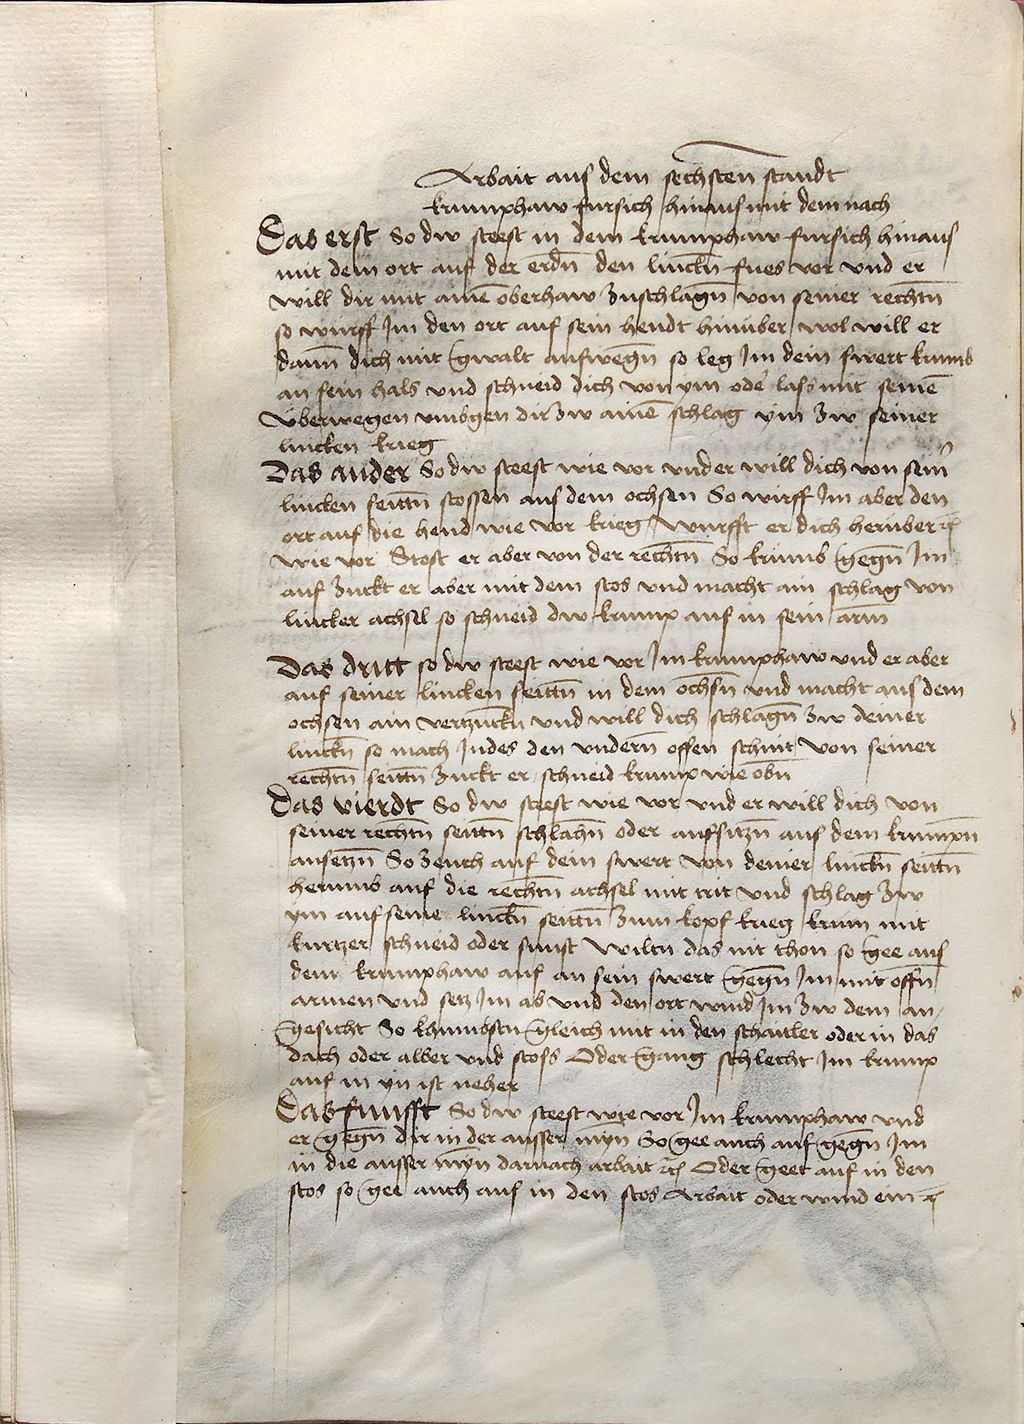 Arbait aus dem sechsten standt
krumphaw fursich hinaus mit dem nach
Das erst So dw steest in dem krumphaw fursich hinaus
mit dem ort auf der erdn̄ den linckn̄ fues vor vnd er
will dir mit ainē oberhaw zuschlagn̄ von seiner rechtn̄
so wurff Im den ort auf sein hendt hinuber wol will er
dann dich mit gwalt aufwegn̄ so leg Im dein swert krumb
an sein hals vnd schneid dich von ym ode' lass mit seinē
vberwegen vmbgen dir zw ainē schlag ym zw seiner
lincken krieg
Das ander So dw steest wie vor vnd er will dich von sein̄
lincken seittn̄ stossen aus dem ochsen So wirff Im aber den
ort auf die hend wie vor krieg Wurfft er dich heruber
wie vor Stost er aber von der rechtn̄ So krumb gegn̄ Im
auf zuckt er aber mit dem stos vnd macht ain schlag von
lincker achsel so schneid dw krump auf in sein arm
Das dritt so dw steest wie vor Im krumphaw vnd er aber
auf seiner lincken seittn̄ in dem ochsn̄ vnd macht aus dem
ochsen ain vertzuckn̄ vnd will dich schlagn̄ zw deiner
linckn̄ so mach Indes den vndern̄ offen schnit von seiner
rechtn̄ seittn̄ zuckt er schneid krump wie obn̄
Das vierdt So dw steest wie vor vnd er will dich von
seiner rechtn̄ seittn̄ schlahn̄ oder auffsitzn̄ aus dem krumpn̄
ansetzn̄ So zeuch auf dein swert von deiner linckn̄ seittn̄
herumb auf die rechtn̄ achsel mit trit vnd schlag zw
ym auf seine linckn̄ seittn̄ zum kopf krieg krum mit
kurtzer schneid oder sunst Wiltu das nit thon so gee aus
dem krumphaw auf an sein swert gegn̄ Im mit offn̄
armen vnd setz Im ab vnd den ort wind Im zw dem an
gesicht So khumbstu gleich mit in den schaitler oder in das
dach oder alber vnd stoss Oder gang schlecht Im krump
auf in yn ist neher
Das funfft So dw steest wie vor Im krumphaw vnd
er gegn̄ dir in der ausser mȳn So gee auch auf gegn̄ Im
in die ausser mȳn darnach arbait Oder geet auf in den
stos so gee auch auf in den stos Arbait oder wind ein